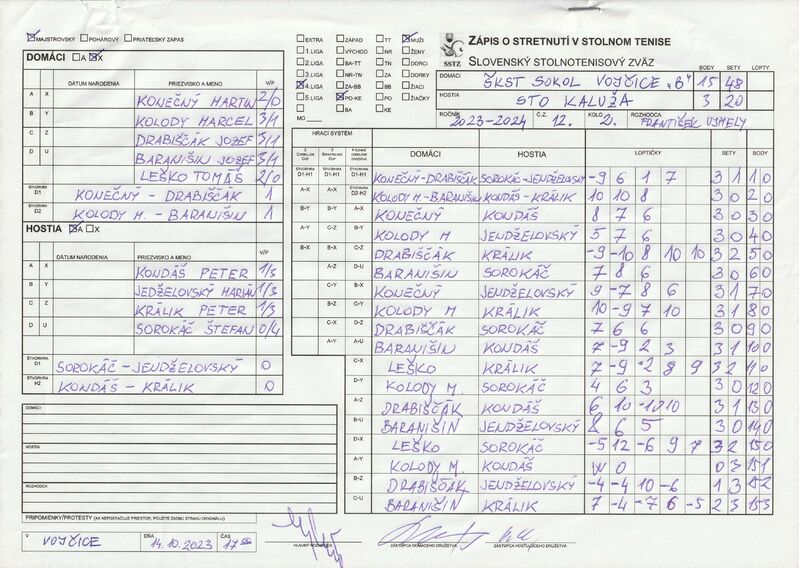 MAJSTROVSKÝ POHÁROVÝ PRIATEĽSKÝ ZÁPAS
DOMÁCI A X
DÁTUM NARODENIA PRIEZVISKO A MENO V/P
A X KONEČNÝ MARTIN 2/0
B Y KOLODY MARCEL 3/1
C Z DRABIŠČÁK JOZEF 3/1
D U BARANIŠIN JOZEF 3/1
LEŠKO TOMÁŠ 2/0
ŠTVORHRA D1 KONEČNÝ - DRABIŠČÁK 1
ŠTVORHRA D2 KOLODY M. - BARANIŠIN 1
HOSTIA A X
DÁTUM NARODENIA PRIEZVISKO A MENO V/P
A X KONDÁŠ PETER 1/3
B Y JEDŽELOVSKÝ MARIÁN 1/3
C Z KRÁLIK PETER 1/3
D U SOROKÁČ ŠTEFAN 0/4
ŠTVORHRA D1 SOROKÁČ - JENDŽELOVSKÝ 0
ŠTVORHRA H2 KONDÁŠ - KRÁLIK 0
DOMÁCI
HOSTIA
ROZHODCA
PRIPOMIENKY/PROTESTY (AK NEPOSTAČUJE PRIESTOR, POUŽITE ZADNÚ STRANU ORIGINÁLU)
V VOJČICE DŇA 14.10.2023 ČAS 17 00
EXTRA ZÁPAD TT MUŽI
1.LIGA VÝCHOD NR ŽENY
2.LIGA BA-TT TN DORCI
3.LIGA NR-TN ZA DORKY
4.LIGA ZA-BB BB ŽIACI
5.LIGA PO-KE PO ŽIAČKY
BA KE
MO
SSTZ
ZÁPIS O STRETNUTÍ V STOLNOM TENISE
SLOVENSKÝ STOLNOTENISOVÝ ZVÄZ
BODY SETY LOPTY
DOMÁCI ŠKST SOKOL VOJČICE "B" 15 48
HOSTIA STO KALUŽA 3 20
ROČNÍK 2023-2024 Č.Z. 12. KOLO 2. ROZHODCA FRANTIŠEK UJHELY
HRACÍ SYSTÉM
DOMÁCI HOSTIA LOPTIČKY SETY BODY
ŠTVORHRA D1-H1 ŠTVORHRA D1-H1 ŠTVORHRA D1-H1 KONEČNÝ-DRABIŠČÁK SOROKÁČ-JENDŽELOVSKÝ -9 6 1 7 3 1 1 0
A-X A-X ŠTVORHRA D2-H2 KOLODY M.-BARANIŠIN KONDÁŠ-KRÁLIK 10 10 8 3 0 2 0
B-Y B-Y A-X KONEČNÝ KONDÁŠ 8 7 6 3 0 3 0
A-Y C-Z B-Y KOLODY M JENDŽELOVSKÝ 5 7 6 3 0 4 0
B-X B-X C-Z DRABIŠČÁK KRÁLIK -9 -10 8 10 10 3 2 5 0
A-Z D-U BARANIŠIN SOROKÁČ 7 8 6 3 0 6 0
C-Y B-X KONEČNÝ JENDŽELOVSKÝ 6 -7 8 6 3 1 7 0
B-Z C-Y KOLODY M KRÁLIK 10 -9 7 10 3 1 8 0
C-X D-Z DRABIŠČÁK SOROKÁČ 7 6 6 3 0 9 0
A-Y A-U BARANIŠIN KONDÁŠ 7 -9 2 3 3 1 10 0
C-X LEŠKO KRÁLIK 7 -9 -2 8 9 3 2 11 0
D-Y KOLODY M. SOROKÁČ 4 6 3 3 0 12 0
A-Z DRABIŠČÁK KONDÁŠ 6 10 -12 10 3 1 13 0
B-U BARANIŠIN JENDŽELOVSKÝ 8 6 5 3 0 14 0
D-X LEŠKO SOROKÁČ -5 12 -6 9 7 3 2 15 0
A-Y KOLODY M. KONDÁŠ W O 0 3 15 1
B-Z DRABIŠČÁK JENDŽELOVSKÝ -4 -4 10 -6 1 3 15 2
C-U BARANIŠIN KRÁLIK 7 -4 -7 6 -5 2 3 15 3
HLAVNÝ ROZHODCA ZÁSTUPCA DOMÁCEHO DRUŽSTVA ZÁSTUPCA HOSŤUJÚCEHO DRUŽSTVA